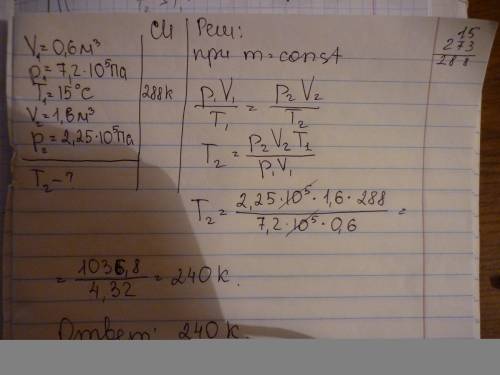 V₁ = 0,6 м³
p₁ = 7,2·10⁵ Па
T₁ = 15°C
V₂ = 1,6 м³
p₂ = 2,25·10⁵ Па
T₂ - ?
СИ
288 K
Реш:
при m = const
p₁V₁/T₁ = p₂V₂/T₂
T₂ = p₂V₂T₁/p₁V₁
T₂ = 2,25·10⁵·1,6·288/7,2·10⁵·0,6 =
= 1036,8/4,32 = 240 K.
Ответ: 240 K.
15
273
288